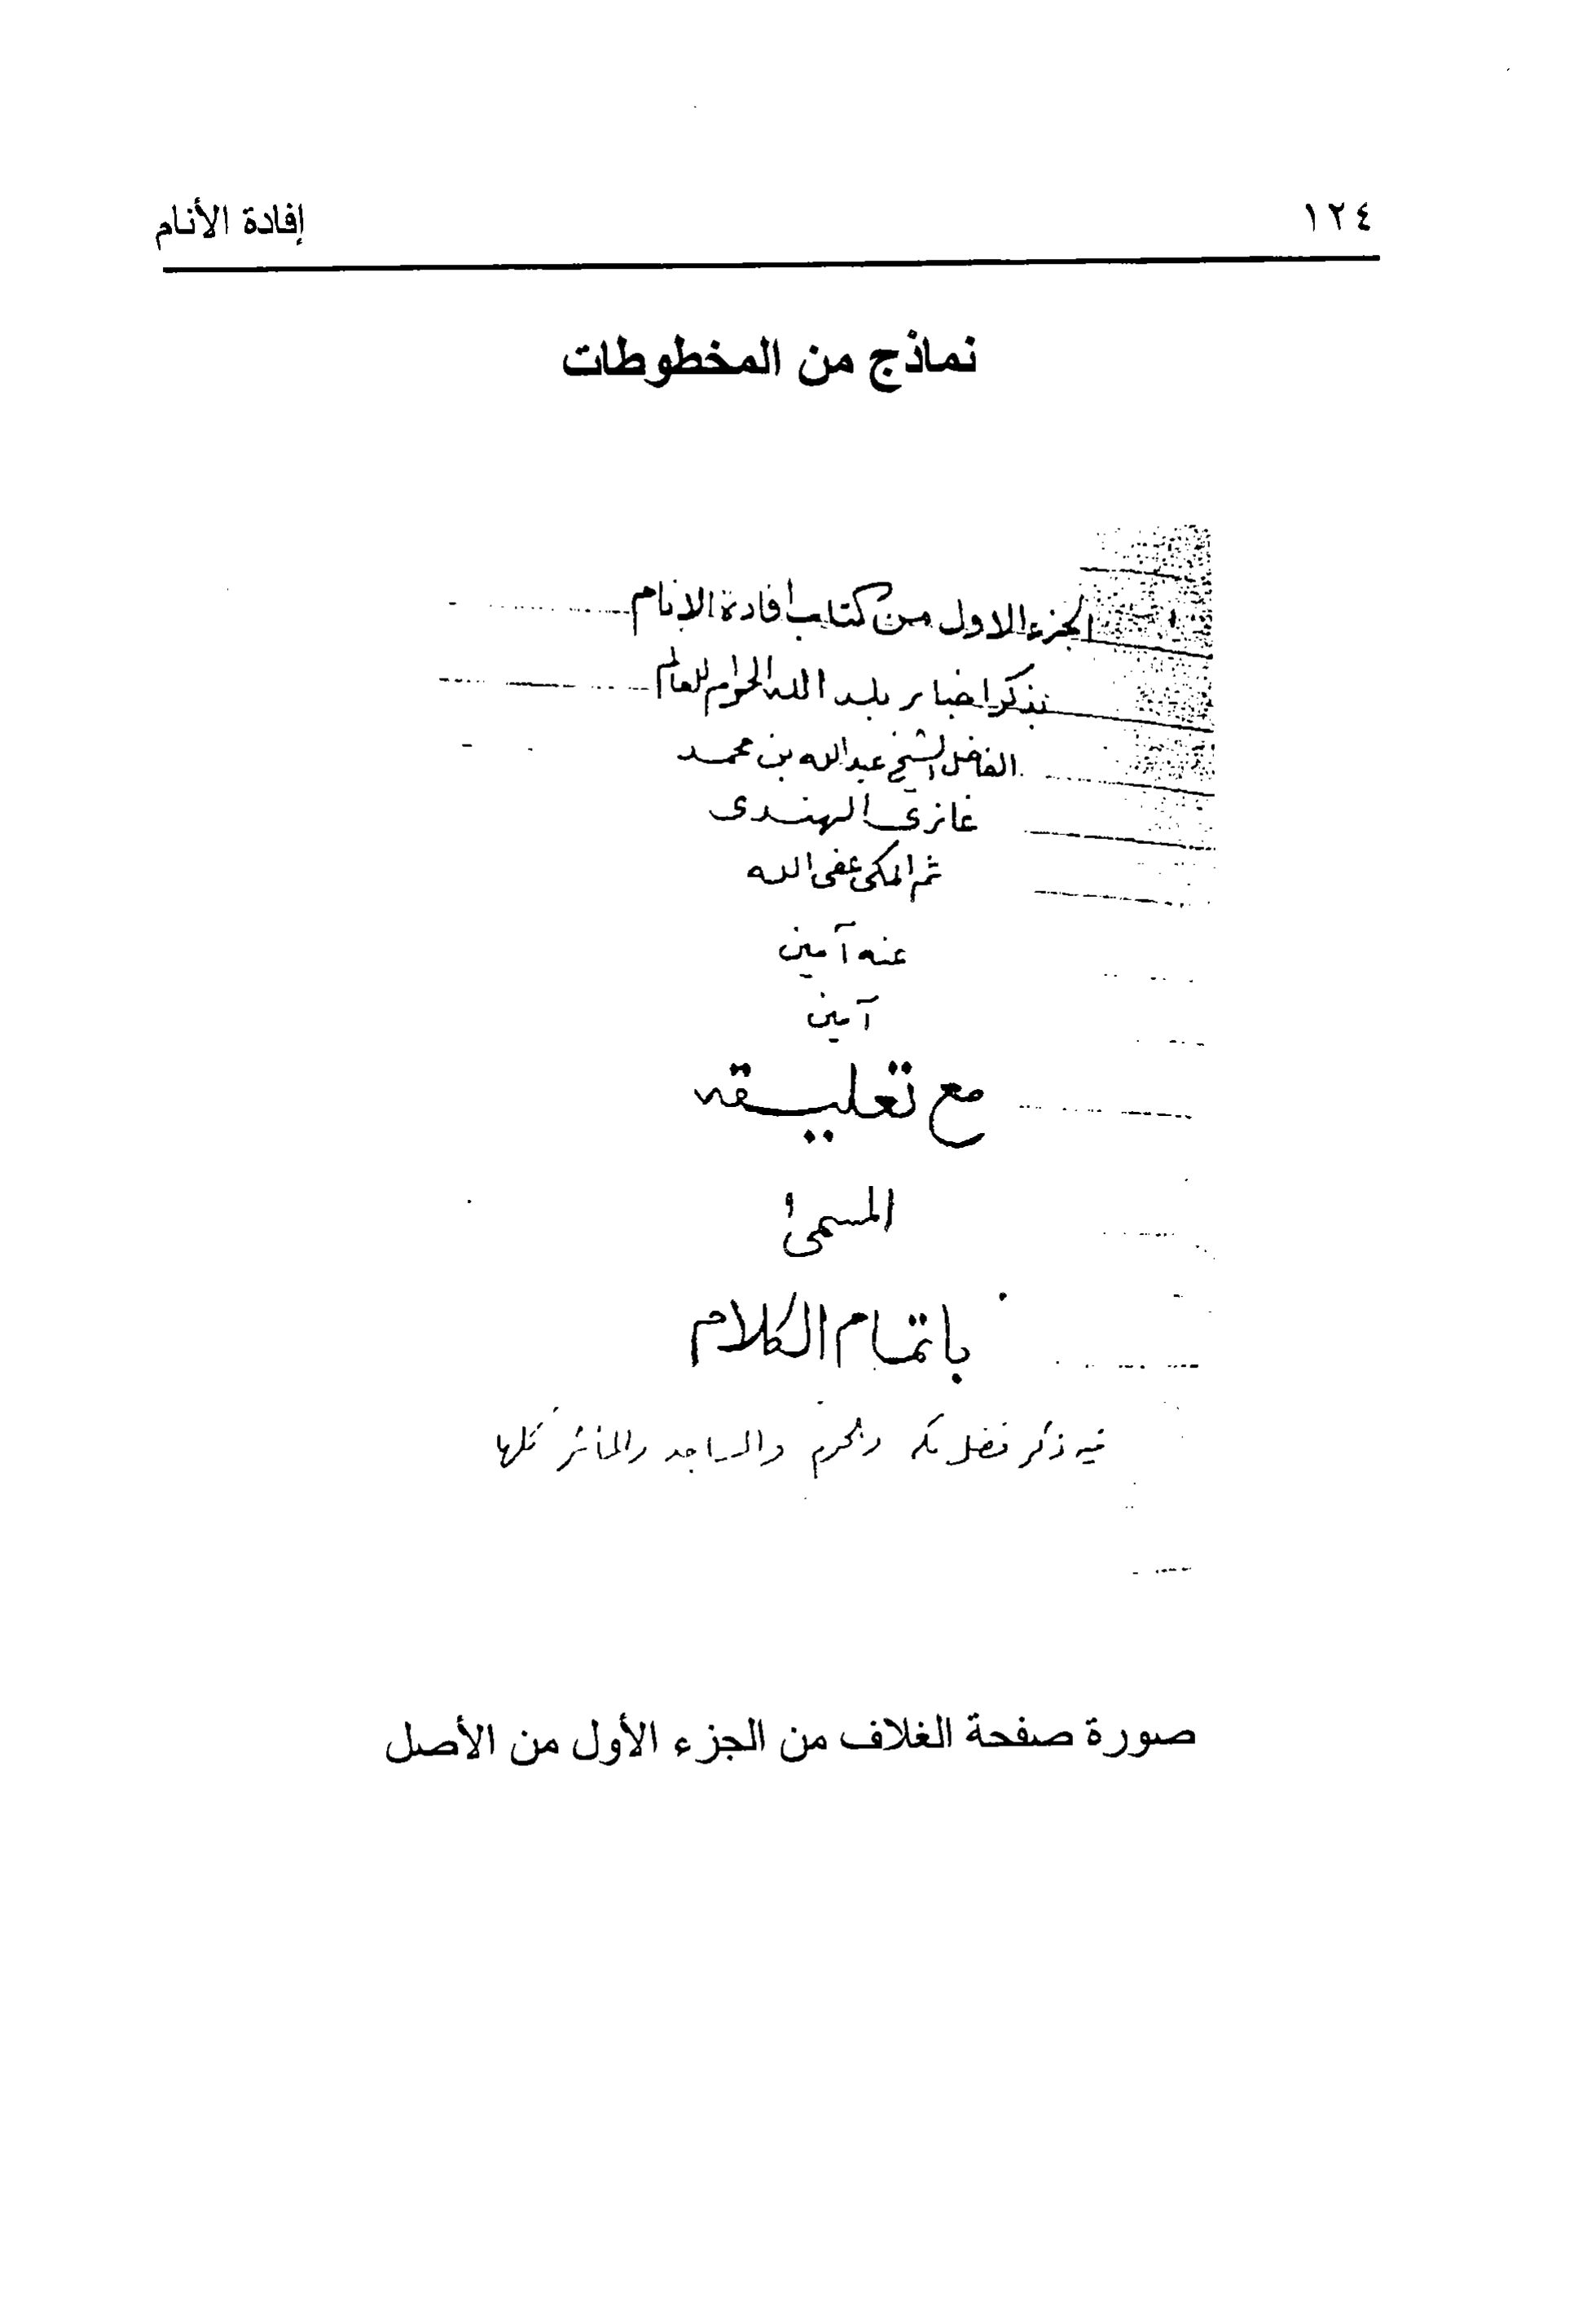 ١٢٤
إفادة الأنام
نماذج من المخطوطات
الجزء الاول من كتاب افادة الانام
بذكر اخبار بلد الله الحرام للعالم
الفاضل الشيخ عبدالله بن محمد
غازى الهندى
ثم المكى عفى الله
عنه آمين
آمين
مع تعليقه
المسمى
باتمام الكلام
فيه ذكر فضل مكه والحرم والمساجد والمأثر كلها
صورة صفحة الغلاف من الجزء الأول من الأصل